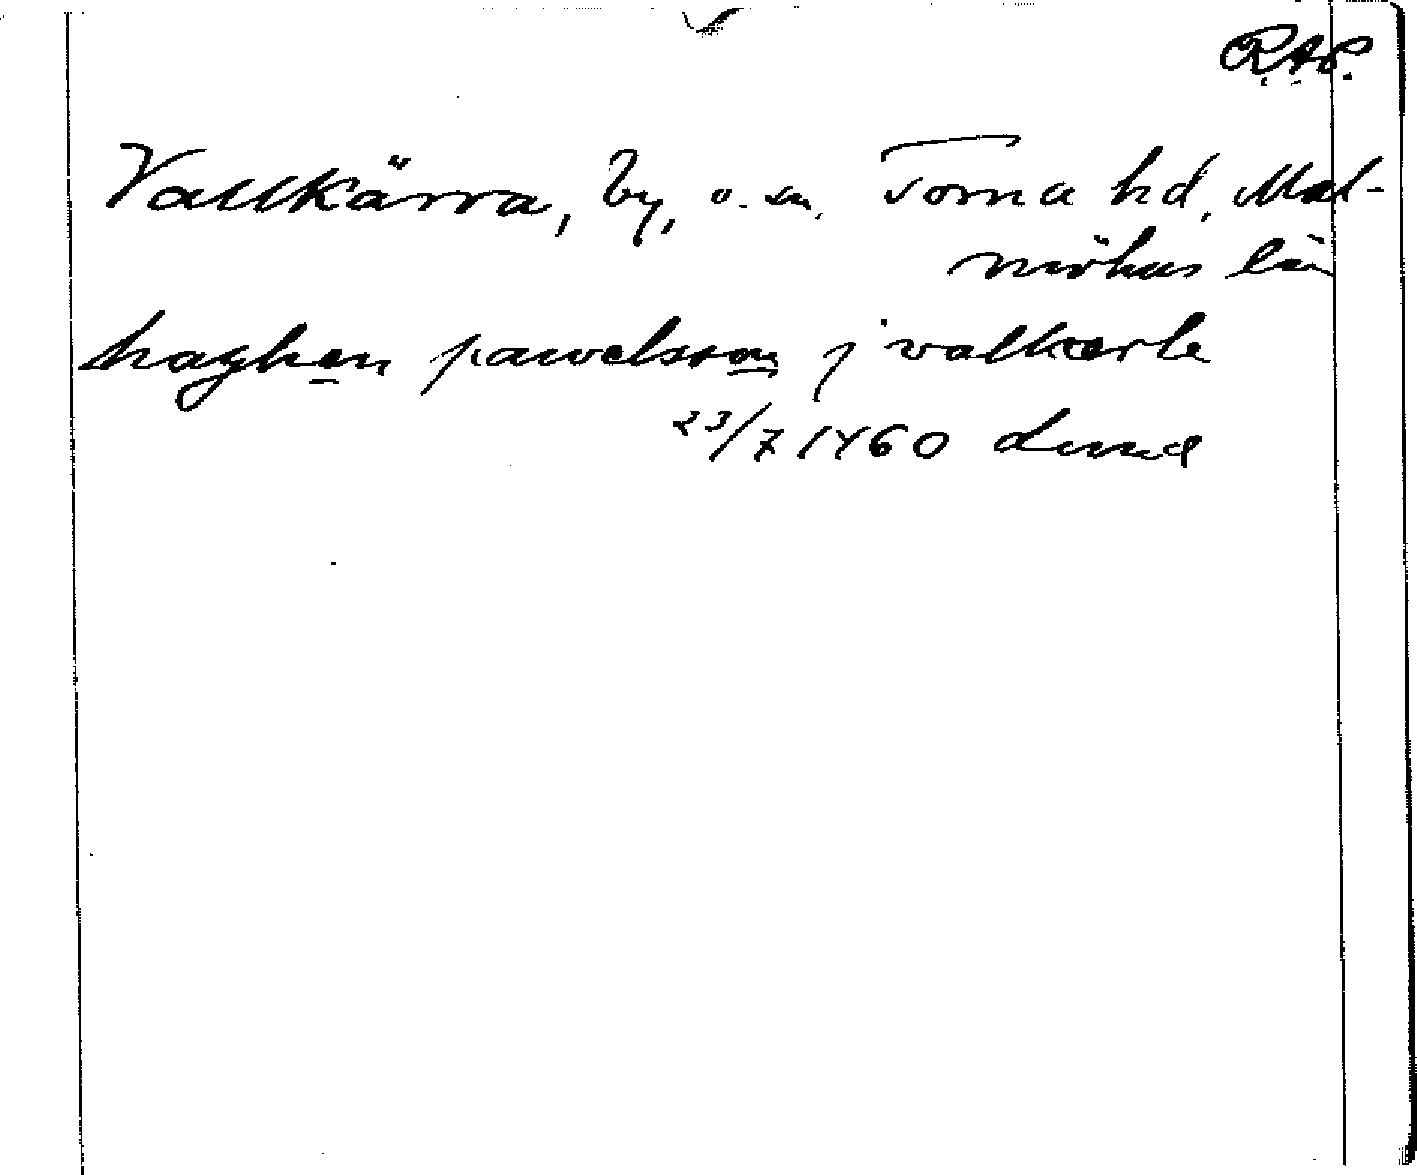 R.A.P.
Vallkärra, by, o. sn, Torna hd, Mal-
möhus län
haghen pawelsson j valkærle
23/7 1460 Lund